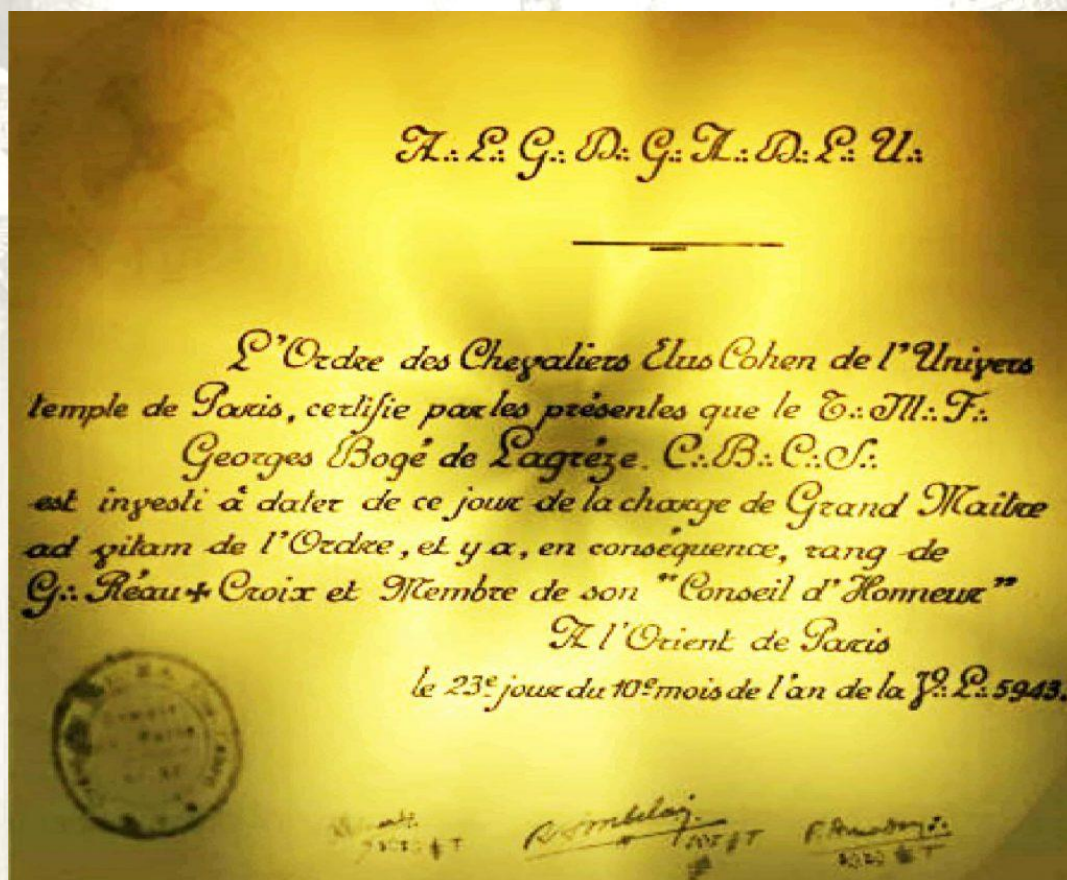 A∴ L∴ G∴ D∴ G∴ A∴ D∴ L∴ U∴
L'Ordre des Chevaliers Elus Cohen de l'Univers
temple de Paris, certifie par les présentes que le T∴ M∴ F∴
Georges Bogé de Lagrèze. C∴ B∴ C∴ S∴
est investi à dater de ce jour de la charge de Grand Maître
ad vitam de l'Ordre, et y a, en conséquence, rang de
G∴ Réau+Croix et Membre de son "Conseil d'Honneur"
A l'Orient de Paris
le 23e jour du 10e mois de l'an de la V∴ L∴ 5943.
R. Ambelain